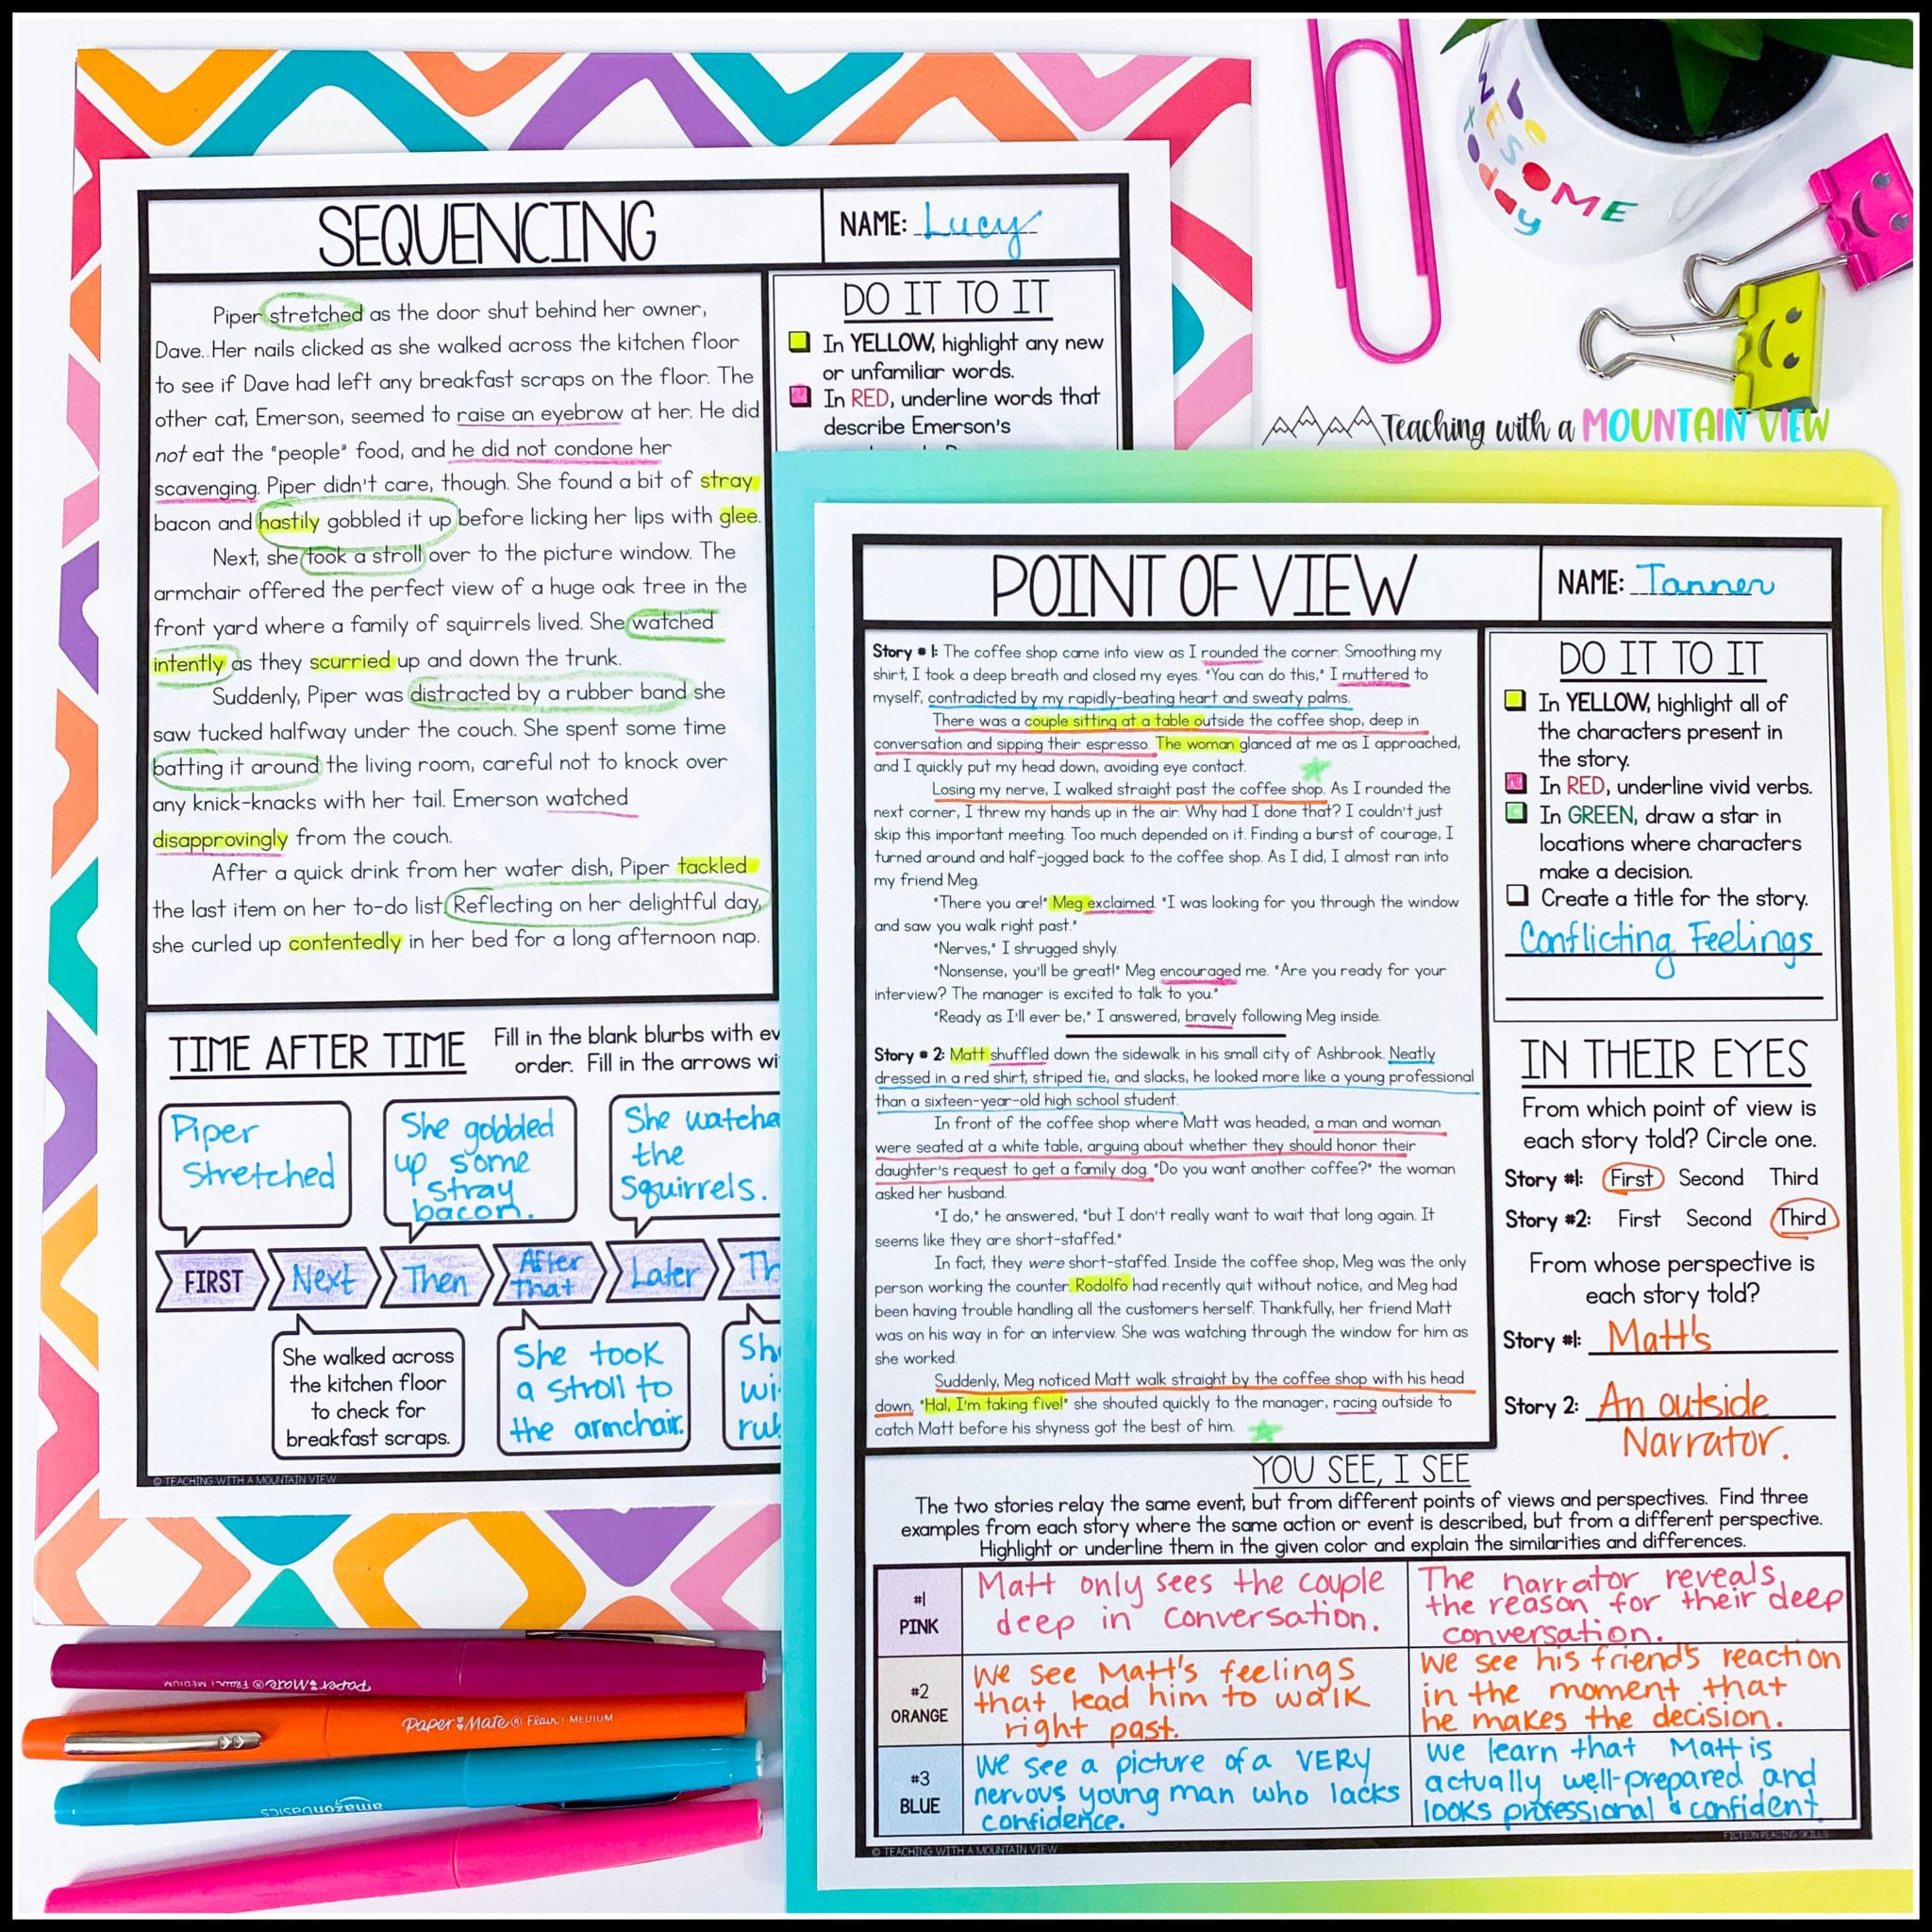 SEQUENCING
NAME: Lucy
Piper stretched as the door shut behind her owner,
Dave. Her nails clicked as she walked across the kitchen floor
to see if Dave had left any breakfast scraps on the floor. The
other cat, Emerson, seemed to raise an eyebrow at her. He did
not eat the "people" food, and he did not condone her
scavenging. Piper didn't care, though. She found a bit of stray
bacon and hastily gobbled it up before licking her lips with glee.
Next, she took a stroll over to the picture window. The
armchair offered the perfect view of a huge oak tree in the
front yard where a family of squirrels lived. She watched
intently as they scurried up and down the trunk.
Suddenly, Piper was distracted by a rubber band she
saw tucked halfway under the couch. She spent some time
batting it around the living room, careful not to knock over
any knick-knacks with her tail. Emerson watched
disapprovingly from the couch.
After a quick drink from her water dish, Piper tackled
the last item on her to-do list. Reflecting on her delightful day,
she curled up contentedly in her bed for a long afternoon nap.
DO IT TO IT
In YELLOW, highlight any new
or unfamiliar words.
In RED, underline words that
describe Emerson's
TIME AFTER TIME
Fill in the blank blurbs with ev
order. Fill in the arrows wi
Piper
Stretched
She gobbled
up some
stray
bacon.
She watche
the
squirrels.
FIRST
Next
Then
After
That
Later
Th
She walked across
the kitchen floor
to check for
breakfast scraps.
She took
a stroll to
the armchair.
Sh
wi
rub
© TEACHING WITH A MOUNTAIN VIEW
AWESOME
today
Teaching with a MOUNTAIN VIEW
POINT OF VIEW
NAME: Tanner
Story # 1: The coffee shop came into view as I rounded the corner. Smoothing my
shirt, I took a deep breath and closed my eyes. "You can do this," I muttered to
myself, contradicted by my rapidly-beating heart and sweaty palms.
There was a couple sitting at a table outside the coffee shop, deep in
conversation and sipping their espresso. The woman glanced at me as I approached,
and I quickly put my head down, avoiding eye contact.
Losing my nerve, I walked straight past the coffee shop. As I rounded the
next corner, I threw my hands up in the air. Why had I done that? I couldn't just
skip this important meeting. Too much depended on it. Finding a burst of courage, I
turned around and half-jogged back to the coffee shop. As I did, I almost ran into
my friend Meg.
"There you are!" Meg exclaimed. "I was looking for you through the window
and saw you walk right past."
"Nerves," I shrugged shyly.
"Nonsense, you'll be great!" Meg encouraged me. "Are you ready for your
interview? The manager is excited to talk to you."
"Ready as I'll ever be," I answered, bravely following Meg inside.
Story # 2: Matt shuffled down the sidewalk in his small city of Ashbrook. Neatly
dressed in a red shirt, striped tie, and slacks, he looked more like a young professional
than a sixteen-year-old high school student.
In front of the coffee shop where Matt was headed, a man and woman
were seated at a white table, arguing about whether they should honor their
daughter's request to get a family dog. "Do you want another coffee?" the woman
asked her husband.
"I do," he answered, "but I don't really want to wait that long again. It
seems like they are short-staffed."
In fact, they were short-staffed. Inside the coffee shop, Meg was the only
person working the counter. Rodolfo had recently quit without notice, and Meg had
been having trouble handling all the customers herself. Thankfully, her friend Matt
was on his way in for an interview. She was watching through the window for him as
she worked.
Suddenly, Meg noticed Matt walk straight by the coffee shop with his head
down. "Hal, I'm taking five!" she shouted quickly to the manager, racing outside to
catch Matt before his shyness got the best of him.
DO IT TO IT
In YELLOW, highlight all of
the characters present in
the story.
In RED, underline vivid verbs.
In GREEN, draw a star in
locations where characters
make a decision.
Create a title for the story.
Conflicting Feelings
IN THEIR EYES
From which point of view is
each story told? Circle one.
Story #1: First Second Third
Story #2: First Second Third
From whose perspective is
each story told?
Story #1: Matt's
Story 2: An outside
Narrator.
YOU SEE, I SEE
The two stories relay the same event, but from different points of views and perspectives. Find three
examples from each story where the same action or event is described, but from a different perspective.
Highlight or underline them in the given color and explain the similarities and differences.
#1
PINK
Matt only sees the couple
deep in conversation.
The narrator reveals
the reason for their deep
conversation.
#2
ORANGE
We see Matt's feelings
that lead him to walk
right past.
We see his friend's reaction
in the moment that
he makes the decision.
#3
BLUE
We see a picture of a VERY
nervous young man who lacks
confidence.
We learn that Matt is
actually well-prepared and
looks professional & confident.
© TEACHING WITH A MOUNTAIN VIEW
FICTION READING SKILLS
Paper Mate® Flair MEDIUM
Paper Mate® Flair MEDIUM
amazonBasics